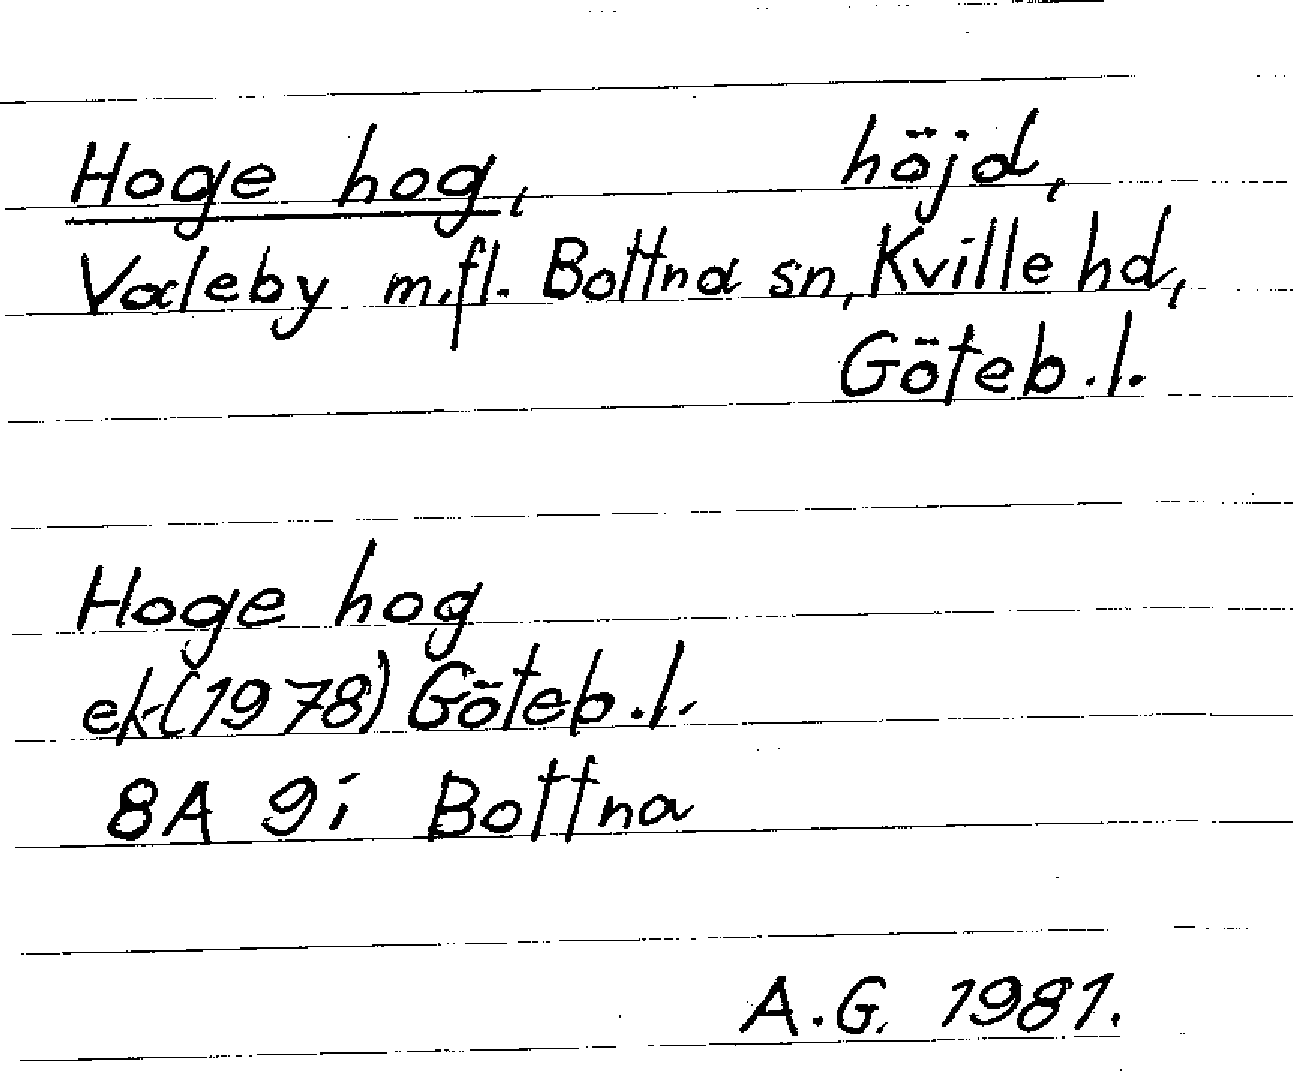 Hoge hog, höjd,
Valeby m.fl. Bottna sn, Kville hd,
Göteb.l.
Hoge hog
ek (1978) Göteb.l.
8A 9i Bottna
A.G. 1981.